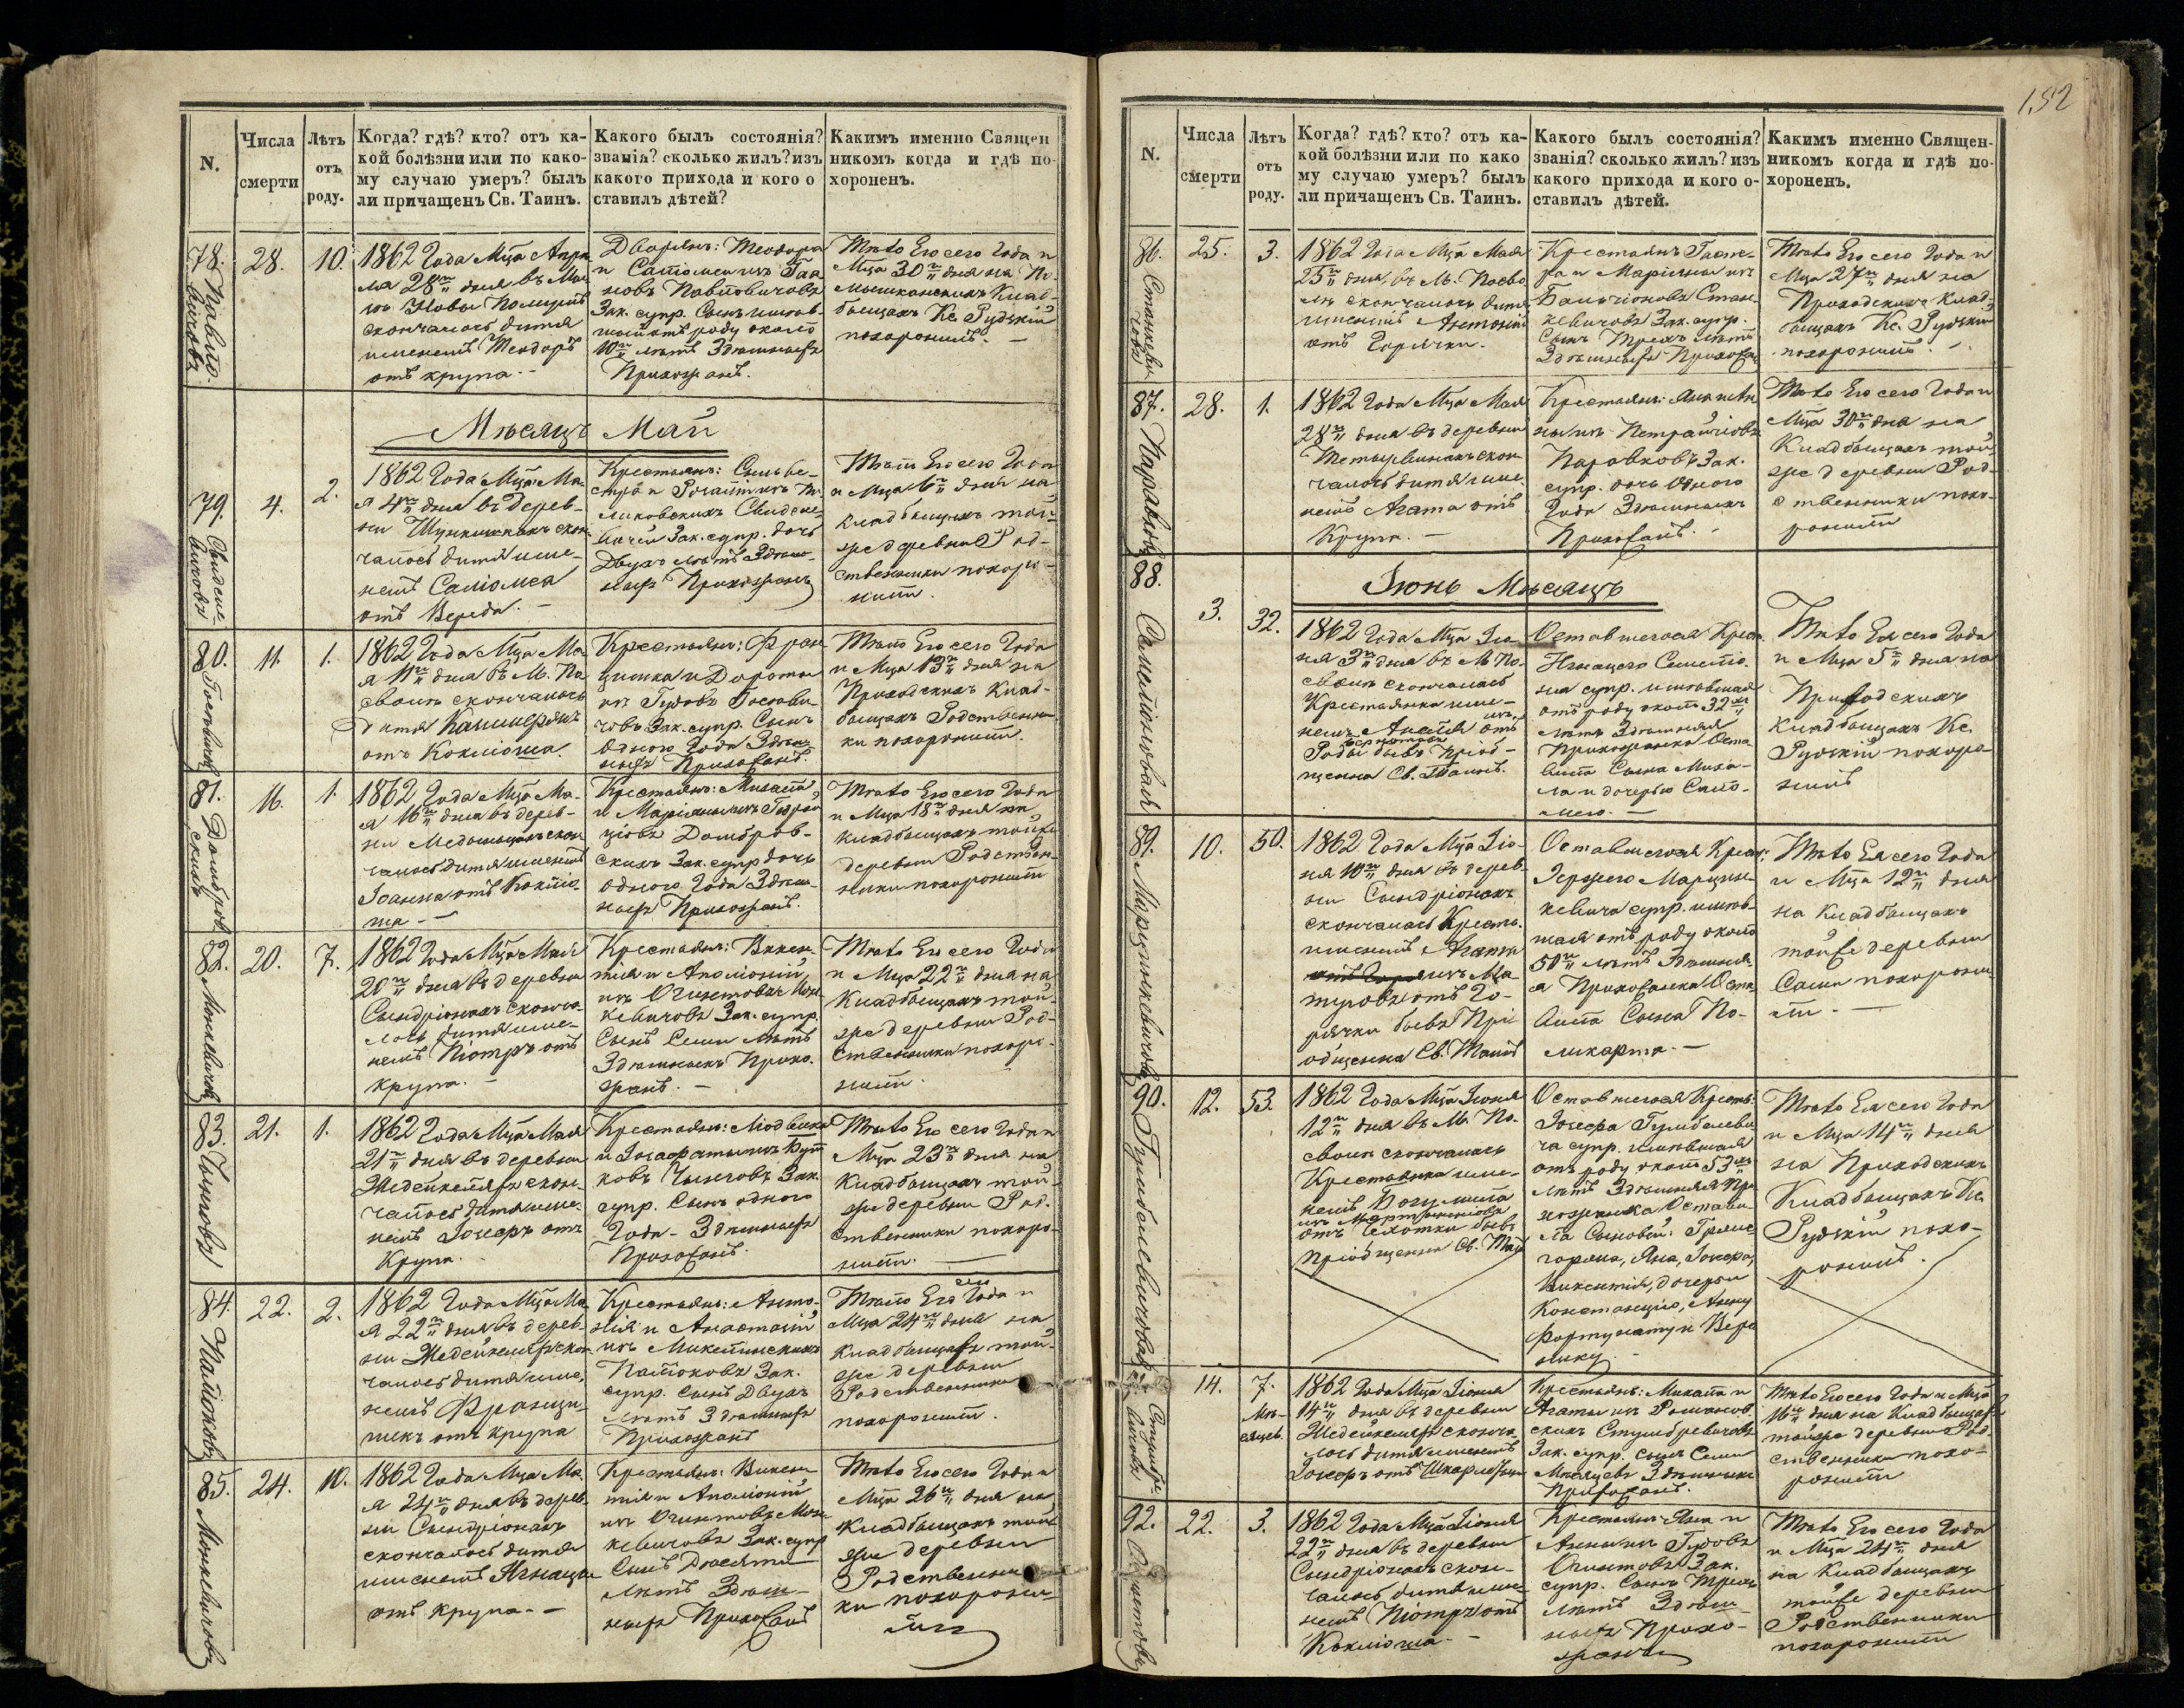 N.
Числа
смерти
Лѣтъ
отъ
роду.
Когда? гдѣ? кто? отъ ка-
кой болѣзни или по како-
му случаю умеръ? былъ
ли причащенъ Св. Таинъ.
Какого былъ состоянія?
званія? сколько жилъ? изъ
какого прихода и кого о
ставилъ дѣтей?
Какимъ именно Священ
никомъ когда и гдѣ по-
хороненъ.
78.
28.
10.
1862 Года Мца Апрѣ-
ля 28го дня въ
скончалось дитя
именемъ Теодоръ
отъ крупа. -
Дворянъ: Теодора
и Саломеи изъ
Зак. супр. Сынъ имѣв-
шій отъ роду около
10ти лѣтъ Здѣшныхъ
Прихожанъ.
Тѣло Его сего Года и
Мца 30го дня на
Клад-
бищахъ Кс. Рудзкій
похоронилъ. -
Мѣсяцъ Май
79.
4.
2.
1862 Года Мца Ма-
я 4го дня въ дерев-
ни скон-
чалось дитя име-
немъ Саломея
отъ Вереда. -
Крестьянъ: Сильве-
стра и
Зак. супр. дочь
Двухъ лѣтъ Здѣш-
ныхъ Прихожанъ
Тѣло Его сего Года
и Мца 6го дня на
кладбищахъ той-
же деревни Род-
ственники похоро-
нили.
80. Гостевичовъ
11.
1.
1862 Года Мца Ма-
я 11го дня въ М. По-
своли скончалось
Дитя Казимеръ
отъ Коклюша.
Крестьянъ: Фран-
цишка и Дороты
изъ Гудовъ
Зак. супр. Сынъ
Одного Года Здѣш-
ныхъ Прихожанъ.
Тѣло Его сего Года
и Мца 13го дня на
Приходскихъ Клад-
бищахъ Родственни-
ки похоронили.
81. Домбров-
скихъ
16.
1.
1862 Года Мца Ма-
я 16го дня въ дерев-
ни скон-
чалось дитя именемъ
Іоанна отъ Коклю-
ша - -
Крестьянъ: Михаила
и Маріянны изъ
Домбров-
скихъ Зак. супр дочь
одного Года Здѣш-
ныхъ Прихожанъ.
Тѣло Его сего Года
и Мца 18го дня на
кладбищахъ тойже
деревни Родствен-
ники похоронили
82. Монкевичовъ
20.
7.
1862 Года Мца Мая
20го дня въ деревни
Сындріонахъ сконча-
лось дитя име-
немъ Піотръ отъ
крупа. -
Крестьянъ: Викен-
тія и Аполіоніи
изъ Огинтовъ Мон-
кевичовъ Зак. супр.
Сынъ Семи лѣтъ
Здѣшныхъ Прихо-
жанъ. -
Тѣло Его сего Года
и Мца 22го дня на
Кладбищахъ той-
же деревни Род-
ственники похоро-
нили.
83. Чыжовъ
21.
1.
1862 Года Мца Мая
21го дня въ деревни
Жедейкеляхъ скон-
чалось дитя име-
немъ Іосифъ отъ
Крупа.
Крестьянъ: Людвика
и Іозафаты изъ
Чыжовъ Зак.
супр. Сынъ одного
Года - Здѣшныхъ
Прихожанъ.
Тѣло Его сего Года и
Мца 23го дня на
Кладбищахъ той-
же деревни Род-
ственники похоро-
нили. -
84.
22.
2.
1862 Года Мца Ма-
я 22го дня въ дерев-
ни Жедейкеляхъ скон-
чалось дитя име-
немъ Франци-
шекъ отъ крупа
Крестьянъ: Анто-
нія и Анастазіи
изъ
Зак.
супр. Сынъ Двухъ
лѣтъ Здѣшныхъ
Прихожанъ
Тѣло Его сего Года и
Мца 24го дня на
Кладбищахъ той-
же деревни
Родственники
похоронили.
85. Монкевичовъ
24.
10.
1862 Года Мца Ма-
я 24го дня въ дерев-
ни Сындріонахъ
скончалось дитя
именемъ Игнацы
отъ крупа. -
Крестьянъ: Викен-
тія и Аполіоніи
изъ Огинтовъ Мон-
кевичовъ Зак. супр
Сынъ Десяти
лѣтъ Здѣш-
ныхъ Прихожанъ
Тѣло Его сего Года и
Мца 26го дня на
Кладбищахъ той
же деревни
Родственни-
ки похорони-
ли
152
N.
Числа
смерти
Лѣтъ
отъ
роду.
Когда? гдѣ? кто? отъ ка-
кой болѣзни или по како
му случаю умеръ? былъ
ли причащенъ Св. Таинъ.
Какого былъ состоянія?
званія? сколько жилъ? изъ
какого прихода и кого о-
ставилъ дѣтей.
Какимъ именно Священ-
никомъ когда и гдѣ по-
хороненъ.
86. Станкеви-
човъ
25.
3.
1862 Года Мца Мая
25го дня, въ М. Посво-
лѣ скончалось дитя
именемъ Антоній
отъ Горячки.
Крестьянъ
и Маріянны изъ
Стан-
кевичовъ Зак. супр.
Сынъ Трехъ лѣтъ
Здѣшныхъ Прихожанъ
Тѣло Его сего Года и
Мца 27го дня на
Приходскихъ Клад-
бищахъ Кс. Рудзкій
похоронилъ.
87.
28.
1.
1862 Года Мца Мая
28го дня въ деревни
скон-
чалось дитя име-
немъ Агата отъ
Крупа. -
Крестьянъ: Яна и
изъ
Зак.
супр. дочь Одного
Года Здѣшныхъ
Прихожанъ. -
Тѣло Его сего Года и
Мца 30го дня на
Кладбищахъ той-
же деревни Род-
ственники похо-
ронили
Іюнь Мѣсяцъ
88.
3.
32.
1862 Года Мца Ію-
ня 3го дня въ М. По-
сволѣ скончалась
Крестьянка име-
немъ
отъ
Родовъ бывъ Пріоб-
щенна Св. Таинъ.
Оставшегося Крест:
Игнацего
супр. имѣвшая
отъ роду около 32хъ
лѣтъ Здѣшняя
Прихожанка Оста-
вила Сына Миха-
ла и дочерью Сало-
мею. -
Тѣло Ея сего Года
и Мца 5го дня на
Приходскихъ
Кладбищахъ Кс.
Рудзкій похоро-
нилъ
89. Марцинкевичова
10.
50.
1862 Года Мца Ію-
ня 10го дня въ дерев-
ни Сындріонахъ
скончалась Кресть.
именемъ Агата
изъ Ма-
отъ Го-
рячки бывъ Прі-
общенна Св. Таинъ
Оставшегося Крест:
Марцин-
кевича супр. имѣв-
шая отъ роду около
50ти лѣтъ Здѣшня-
я Прихожанка Оста-
вила Сына По-
ликарпа. -
Тѣло Ея сего Года
и Мца 12го дня
на Кладбищахъ
тойже деревни
Сами похорони-
ли. -
90. Гумбелевичовая
12.
53.
1862 Года Мца Іюня
12го дня въ М. По-
сволѣ скончалась
Крестьянка име-
немъ Богумила
отъ Сухотки бывъ
пріобщенна Св. Таинъ
Оставшегося Кресть:
Іосифа Гумбелеви-
ча супр. имѣвшая
отъ роду около 53хъ
лѣтъ Здѣшняя При-
хожанка Остави-
ла Сыновей:
Яна, Іосифа,
Викентія, дочерьи
Констанцію, Анну
Фортунату и Веро
нику.
Тѣло Ея сего Года
и Мца 14го дня
на Приходскихъ
Кладбищахъ Кс.
Рудзкій похо-
ронилъ.
14.
7.
мѣ-
сяцев.
1862 Года Мца Іюня
14го дня въ деревни
Жедейкеляхъ сконча-
лось дитя именемъ
Іосифъ отъ Шкарлатины
Крестьянъ: Михала и
Агаты изъ Романов-
скихъ
Зак. супр. сынъ Семи
Мѣсяцевъ Здѣшныхъ
Прихожанъ.
Тѣло Его сего Года и Мца
16го дня на Кладбищахъ
тойже деревни Род-
ственники похо-
ронили
92. Огинтовъ
22.
3.
1862 Года Мца Іюня
22го дня въ деревни
Сындріонахъ скон-
чалось дитя име-
немъ Піотръ отъ
Коклюша. -
Крестьянъ Яна и
Анны изъ Гудовъ
Огинтовъ Зак.
супр. Сынъ Трехъ
лѣтъ Здѣш-
ныхъ Прихо-
жанъ
Тѣло Его сего Года
и Мца 24го дня
на Кладбищахъ
тойже деревни
Родственники
похоронили